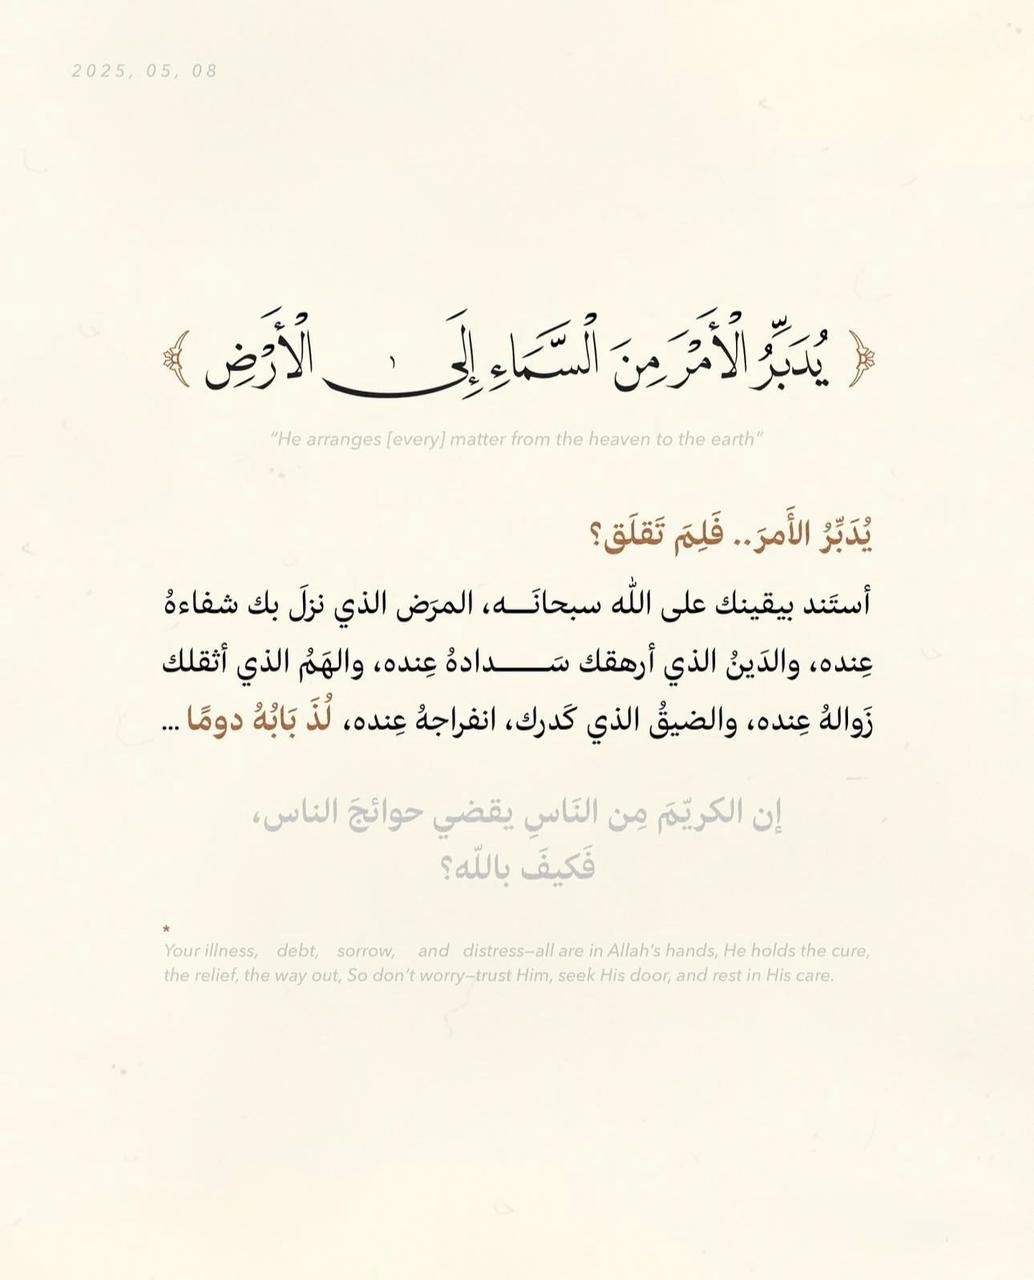 2025, 05, 08
﴿ يُدَبِّرُ ٱلْأَمْرَ مِنَ ٱلسَّمَاءِ إِلَى ٱلْأَرْضِ ﴾
“He arranges [every] matter from the heaven to the earth”
يُدَبِّرُ الأَمرَ.. فَلِمَ تَقلَق؟
أستَند بيقينك على الله سبحانَـــه، المرَض الذي نزلَ بك شفاءهُ
عِنده، والدَينُ الذي أرهقك سَـــــدادهُ عِنده، والهَمُ الذي أثقلك
زَوالهُ عِنده، والضيقُ الذي كَدرك، انفراجهُ عِنده، لُذَ بَابُهُ دومًا ...
إن الكريّمَ مِن النَاسِ يقضي حوائجَ الناس،
فَكيفَ باللّه؟
*
Your illness, debt, sorrow, and distress—all are in Allah's hands, He holds the cure,
the relief, the way out, So don't worry—trust Him, seek His door, and rest in His care.